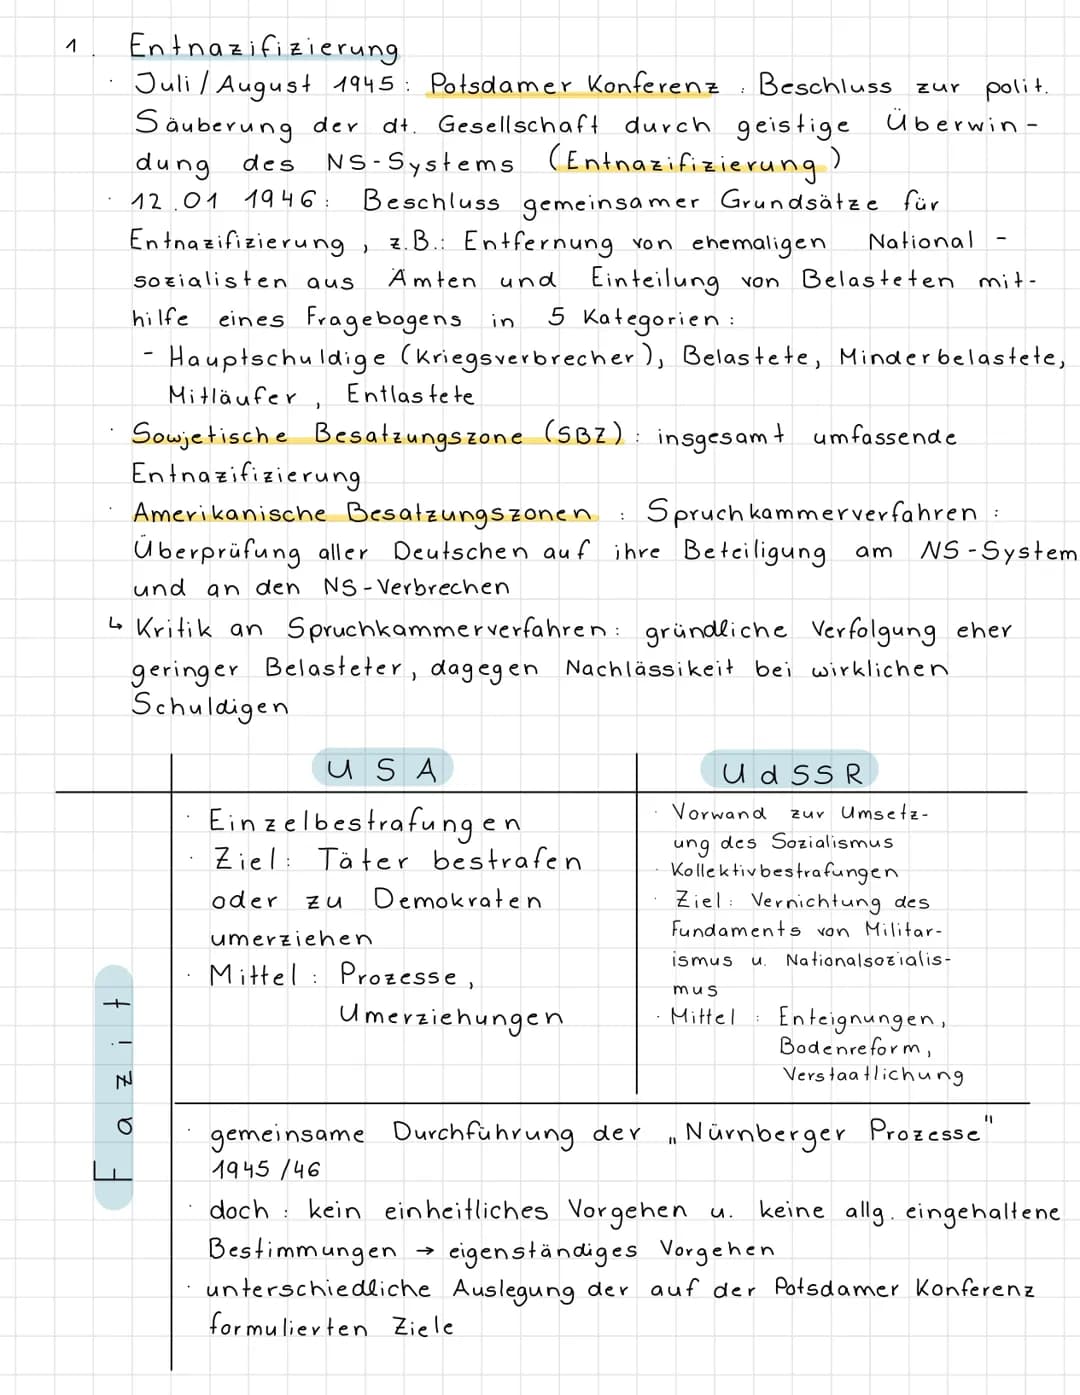 1. Entnazifizierung
· Juli / August 1945: Potsdamer Konferenz. Beschluss zur polit.
Säuberung der dt. Gesellschaft durch geistige Überwin-
dung des NS-Systems (Entnazifizierung)
· 12.01 1946: Beschluss gemeinsamer Grundsätze für
Entnazifizierung, z.B.: Entfernung von ehemaligen National-
sozialisten aus Ämten und Einteilung von Belasteten mit-
hilfe eines Fragebogens in 5 Kategorien:
- Hauptschuldige (Kriegsverbrecher), Belastete, Minderbelastete,
Mitläufer, Entlastete
· Sowjetische Besatzungszone (SBZ): insgesamt umfassende
Entnazifizierung
· Amerikanische Besatzungszonen: Spruchkammerverfahren:
Überprüfung aller Deutschen auf ihre Beteiligung am NS-System
und an den NS-Verbrechen
↳ Kritik an Spruchkammerverfahren: gründliche Verfolgung eher
geringer Belasteter, dagegen Nachlässikeit bei wirklichen
Schuldigen
USA
· Einzelbestrafungen
· Ziel: Täter bestrafen
oder zu Demokraten
umerziehen
· Mittel: Prozesse,
Umerziehungen
UdSSR
· Vorwand zur Umsetz-
ung des Sozialismus
· Kollektivbestrafungen
· Ziel: Vernichtung des
Fundaments von Militar-
ismus u. Nationalsozialis-
mus
· Mittel: Enteignungen,
Bodenreform,
Verstaatlichung
Fazit
· gemeinsame Durchführung der „Nürnberger Prozesse"
1945/46
· doch: kein einheitliches Vorgehen u. keine allg. eingehaltene
Bestimmungen → eigenständiges Vorgehen
· unterschiedliche Auslegung der auf der Potsdamer Konferenz
formulierten Ziele